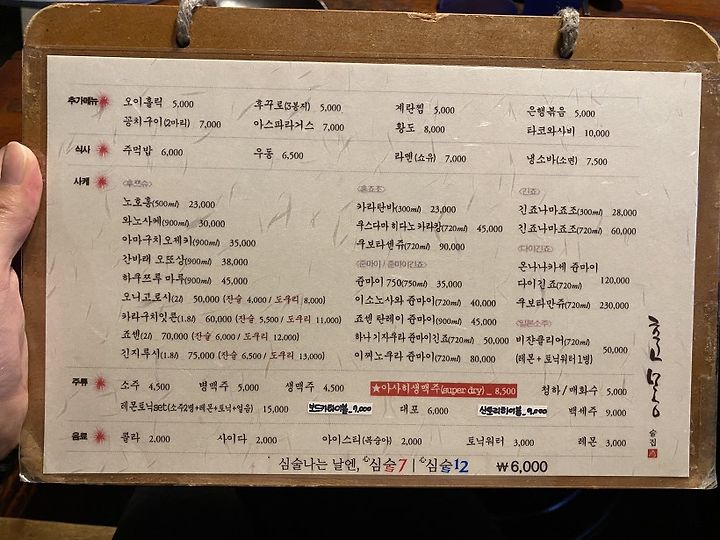 추가메뉴 오이홀릭 5,000 후꾸로(3봉지) 5,000 계란찜 5,000 은행볶음 5,000
꽁치구이(2마리) 7,000 아스파라거스 7,000 황도 8,000 타코와사비 10,000
식사 주먹밥 6,000 우동 6,500 라멘(쇼유) 7,000 냉소바(소면) 7,500
사케
<후쯔슈>
노호홍(500ml) 23,000
와노사케(900ml) 30,000
아마구치오제키(900ml) 35,000
간바레 오또상(900ml) 38,000
하우쯔루 마루(900ml) 45,000
오니고로시(2l) 50,000 (잔술 4,000 / 도쿠리 8,000)
카라구치잇콘(1.8l) 60,000 (잔술 5,500 / 도쿠리 11,000)
죠센(2l) 70,000 (잔술 6,000 / 도쿠리 12,000)
긴지루시(1.8l) 75,000 (잔술 6,500 / 도쿠리 13,000)
<혼죠조>
카라탄바(300ml) 23,000
우스다마 히다노 카라캉(720ml) 45,000
쿠보타센쥬(720ml) 90,000
<준마이 / 준마이긴죠>
쥰마이 750(750ml) 35,000
이소노사와 쥰마이(720ml) 40,000
죠센 탄레이 쥰마이(900ml) 45,000
하나 기자쿠라 쥰마이긴죠(720ml) 50,000
이찌노쿠라 쥰마이(720ml) 80,000
<긴죠>
긴죠나마죠조(300ml) 28,000
긴죠나마죠조(720ml) 60,000
<다이긴죠>
온나나카세 쥰마이
다이긴죠(720ml) 120,000
쿠보타만쥬(720ml) 230,000
<일본소주>
비쟌클리어(720ml)
(레몬 + 토닉워터 1병) 50,000
주류 소주 4,500 병맥주 5,000 생맥주 4,500 ★아사히생맥주(super dry)_ 8,500 청하 / 매화수 5,000
레몬토닉set(소주2병+레몬+토닉+얼음) 15,000 보드카하이볼_9,000 대포 6,000 산토리하이볼_9,000 백세주 9,000
음료 콜라 2,000 사이다 2,000 아이스티(복숭아) 2,000 토닉워터 3,000 레몬 3,000
심술나는 날엔, 心심술7 | 心심술12 ₩6,000
술집